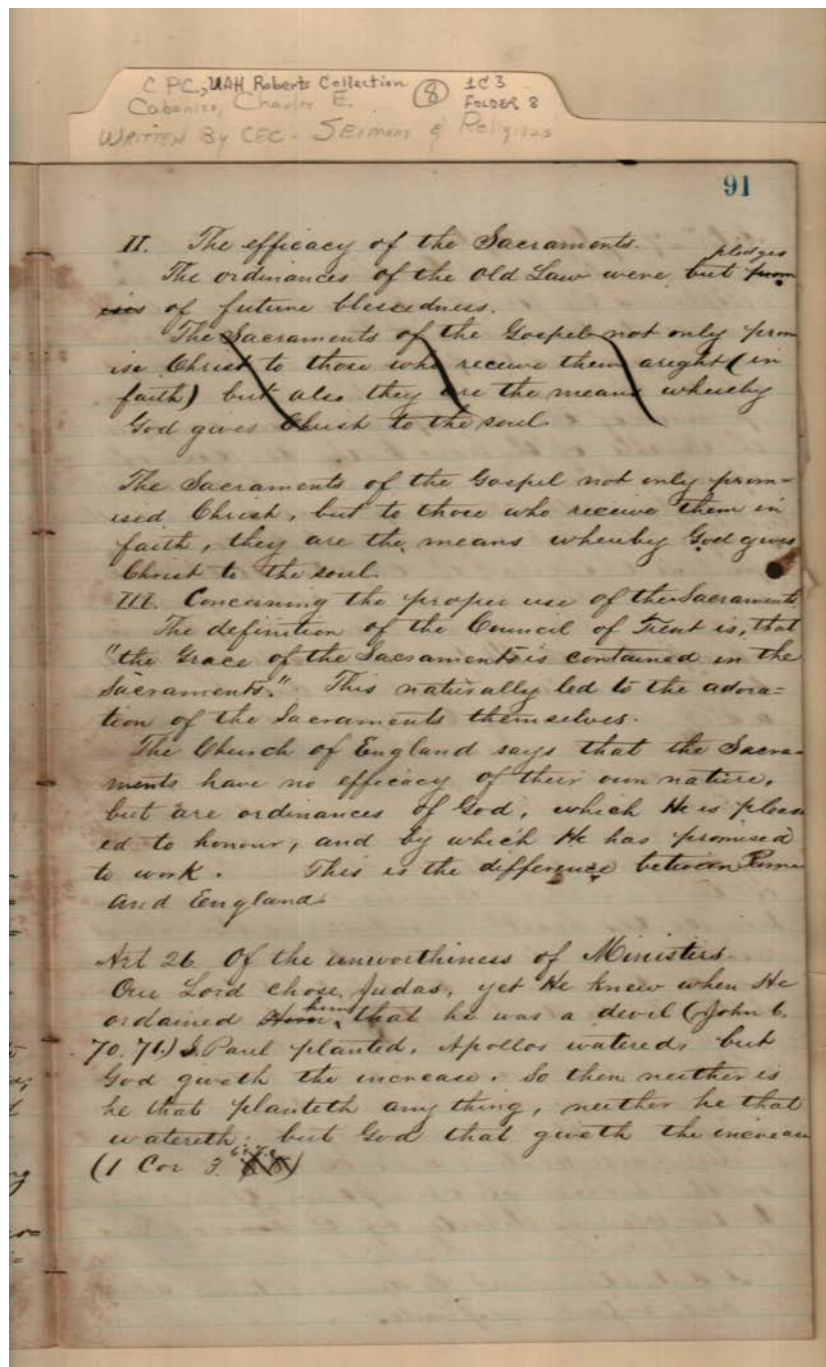 C PC, UAH Roberts Collection
Cabaniss, Charles E.
8
1C3
FOLDER 8
WRITTEN By CEC - Sermons & Religious
91
II. The efficacy of the Sacraments.
pledges
The ordinances of the Old Law were but prom
ises of future blessedness.
The Sacraments of the Gospel not only prom
ise Christ to those who receive them aright (in
faith) but also they are the means whereby
God gives Christ to the soul.
The Sacraments of the Gospel not only prom=
ised Christ, but to those who receive them in
faith, they are the means whereby God gives
Christ to the soul.
III. Concerning the proper use of the Sacraments
The definition of the Council of Trent is, that
"the Grace of the Sacraments is contained in the
Sacraments." This naturally led to the adora=
tion of the Sacraments themselves.
The Church of England says that the Sacra-
ments have no efficacy of their own nature,
but are ordinances of God, which He is pleas
ed to honour, and by which He has promised
to work. This is the difference between Rome
and England.
Art 26 Of the unworthiness of Ministers.
Our Lord chose Judas, yet He knew when He
him
ordained Him that he was a devil (John 6.
70. 71.) S. Paul planted, Apollos watered, but
God giveth the increase. So then neither is
he that planteth any thing, neither he that
watereth: but God that giveth the increase
(1 Cor 3. 6. 7.)